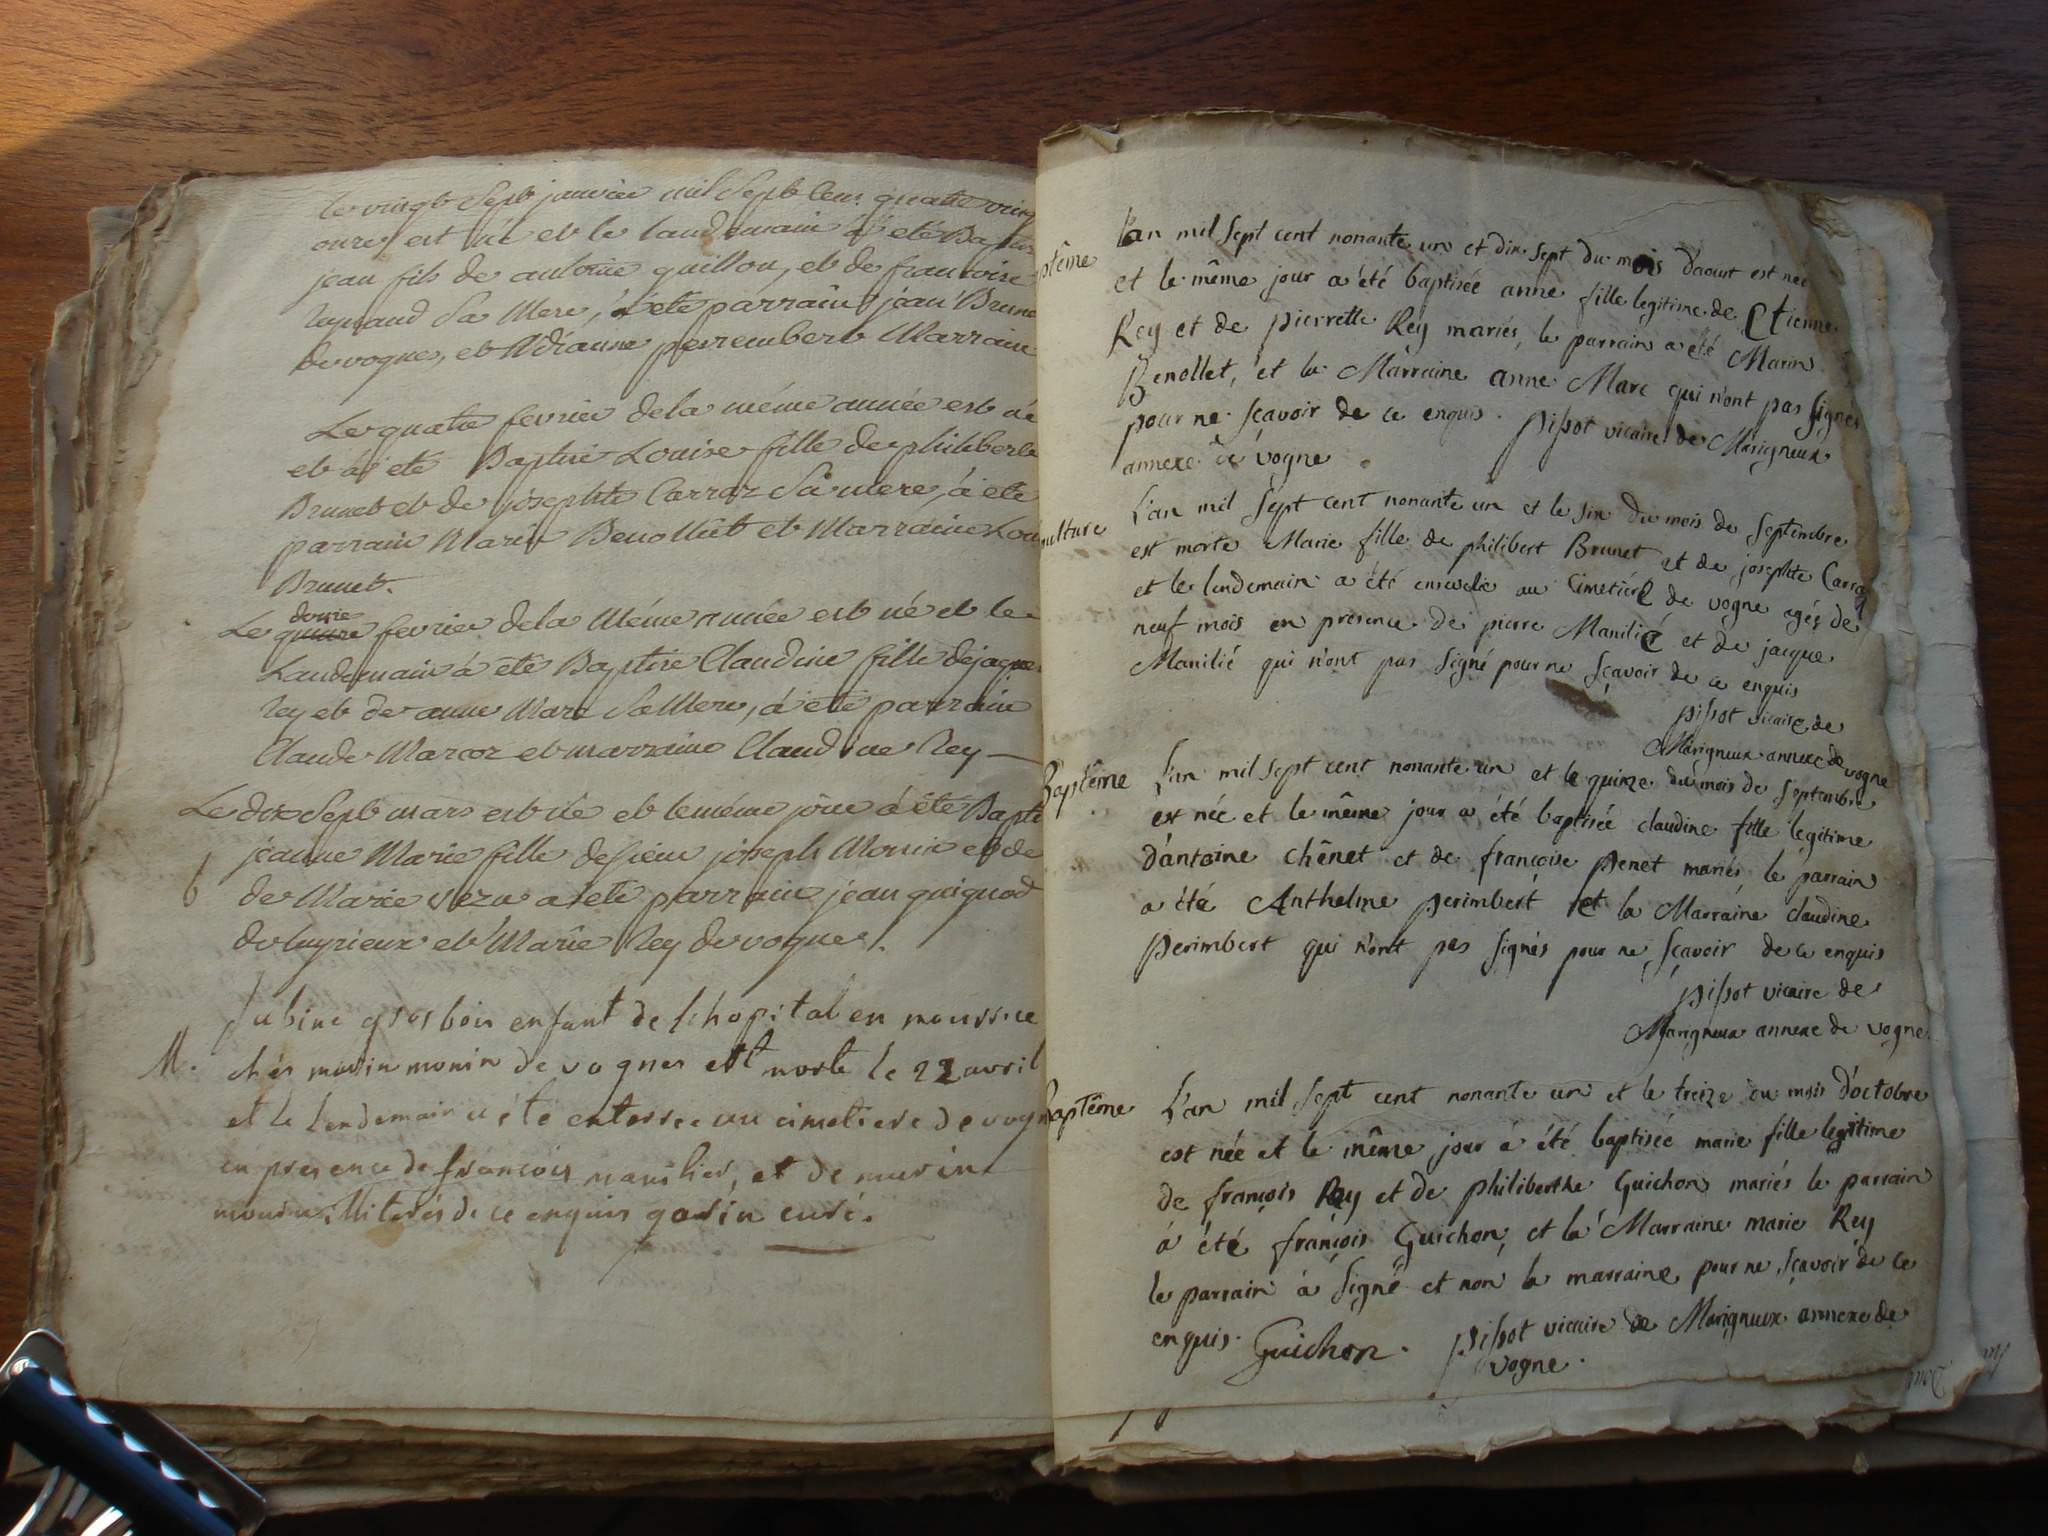 le vingt Sept janvier mil Sept Cent quatre vingt
onze est né et le landemain à eté Baptisé
jean fils de antoine guillon, et de francoise
Reynaud Sa Mere, à eté parrain jean Brunet
de vognes, et Mdianne perrembert Marraine
Le quatre fevrier de la méme année est né
et à eté Baptisé Louise fille de philibert
Brunet et de josephte Carraz Sa mere, à eté
parrain Marin Benollièt et Marraine Lou
Brunet.
douze
Le quinze fevrier de la Méme année est né et le
Landemain à eté Baptisé Claudine fille de jaque
Rey et de anne Marc Sa Mere, à eté parrain
Claude Marcoz et marraine Claudine Rey
Le dix Sept mars est né et le méme jour à eté Bapti
jeanne Marie fille de sieur joseph Monin et de
b de Marie vezu a eté parrain jean guignod
de luyrieux et Marie Rey de vognes.
Jubine gros bois enfant de l'hopital en nourrice
M. chés marin monin de vognes est morte le 22 avril
et le lendemain a été enterree au cimetiere de vogn
en presence de francois manilier, et de marin
monin illiterés de ce enquis garin curé.
ptême L'an mil sept cent nonante un et dix sept du mois d'aout est née
et le même jour a été baptisée anne fille legitime de Etienne
Rey et de pierrette Rey mariés, le parrain a été Marin
Benollet, et la Marraine anne Marc qui n'ont pas signés
pour ne sçavoir de ce enquis. pissot vicaire de Marigneux
annexe de vogne.
ulture L'an mil sept cent nonante un et le six du mois de septembre
est morte Marie fille de philibert Brunet et de josephte Carra
et le lendemain a été ensevelie au Cimetiére de vogne agés de
neuf mois en presence de pierre Manilié et de jacque
Manilié qui n'ont pas signé pour ne sçavoir de ce enquis
pissot vicaire de
Marigneux annexe de vogne
Baptême L'an mil sept cent nonante un et le quinze du mois de septembre
est née et le même jour a été baptisée claudine fille legitime
d'antoine chênet et de françoise penet mariés le parrain
a été Anthelme perimbert et la Marraine claudine
perimbert qui n'ont pas signés pour ne sçavoir de ce enquis
pissot vicaire de
Marigneux annexe de vogne
Baptême L'an mil sept cent nonante un et le treize du mois d'octobre
est née et le même jour à été baptisée marie fille legitime
de françois Rey et de philiberthe Guichon mariés le parrain
à été françois Guichon, et la Marraine marie Rey
le parrain à signé et non la marraine pour ne sçavoir de ce
enquis. Guichon. pissot vicaire de Marigneux annexe de
vogne.